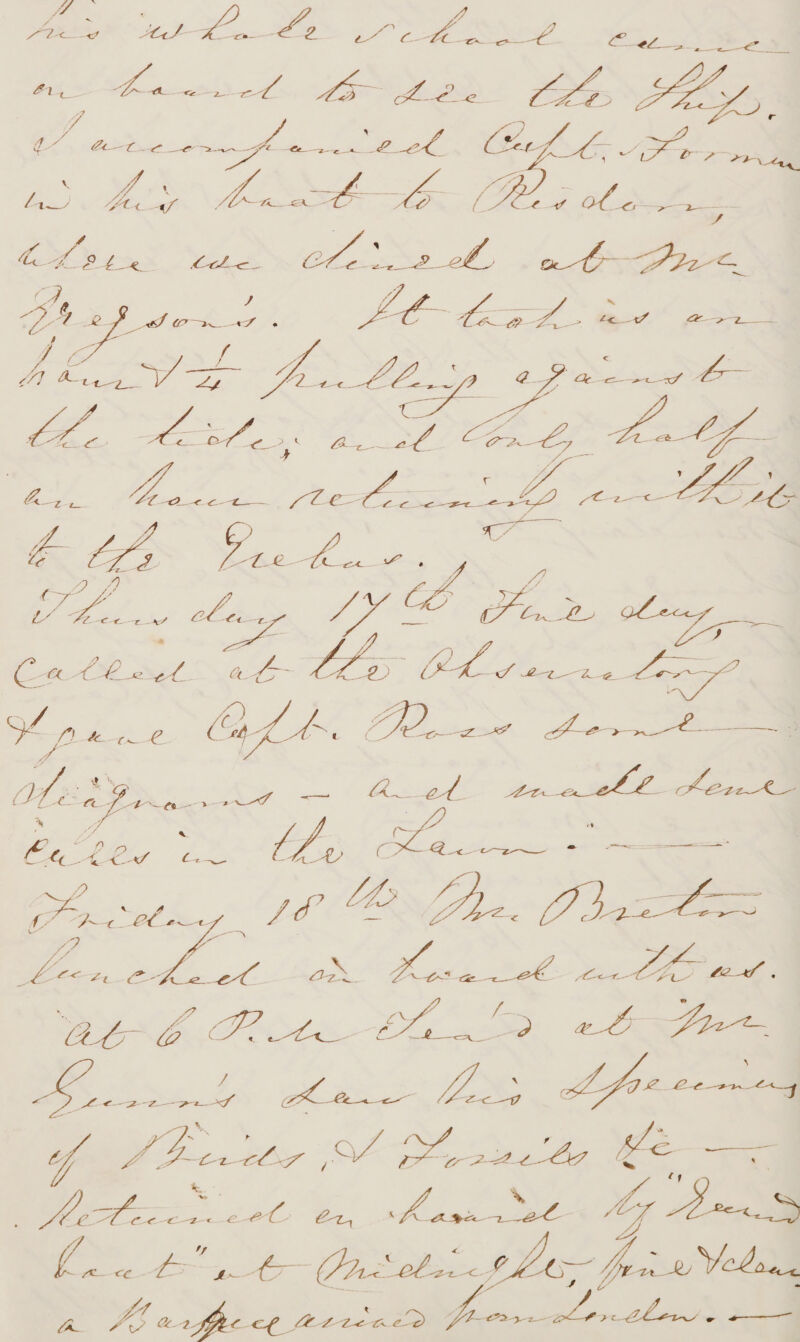 his whole School came
on board to see the Ship.
I accompanied Capt. Forman
in his boat to Risdon,
where we dined at Mr.
Gregson's. It took us an
hour & 1/4 pulling against
the tide; and only half
an hour returning with it
to the Erebus.
Thursday 17th Fine day
Called at the Observatory
& gave Capt. Ross some
diagrams — and made some
calls in the Town. —
Friday 18th Mr. Breton
lunched on board with us.
At 6 P.M Tea'd at Mr.
Gunn's saw his Specimens
of Birds, & Fossils &c —.
Returned on board by "Guard
boat" at Midnight, fine & clear
a Barque arrived from London. —